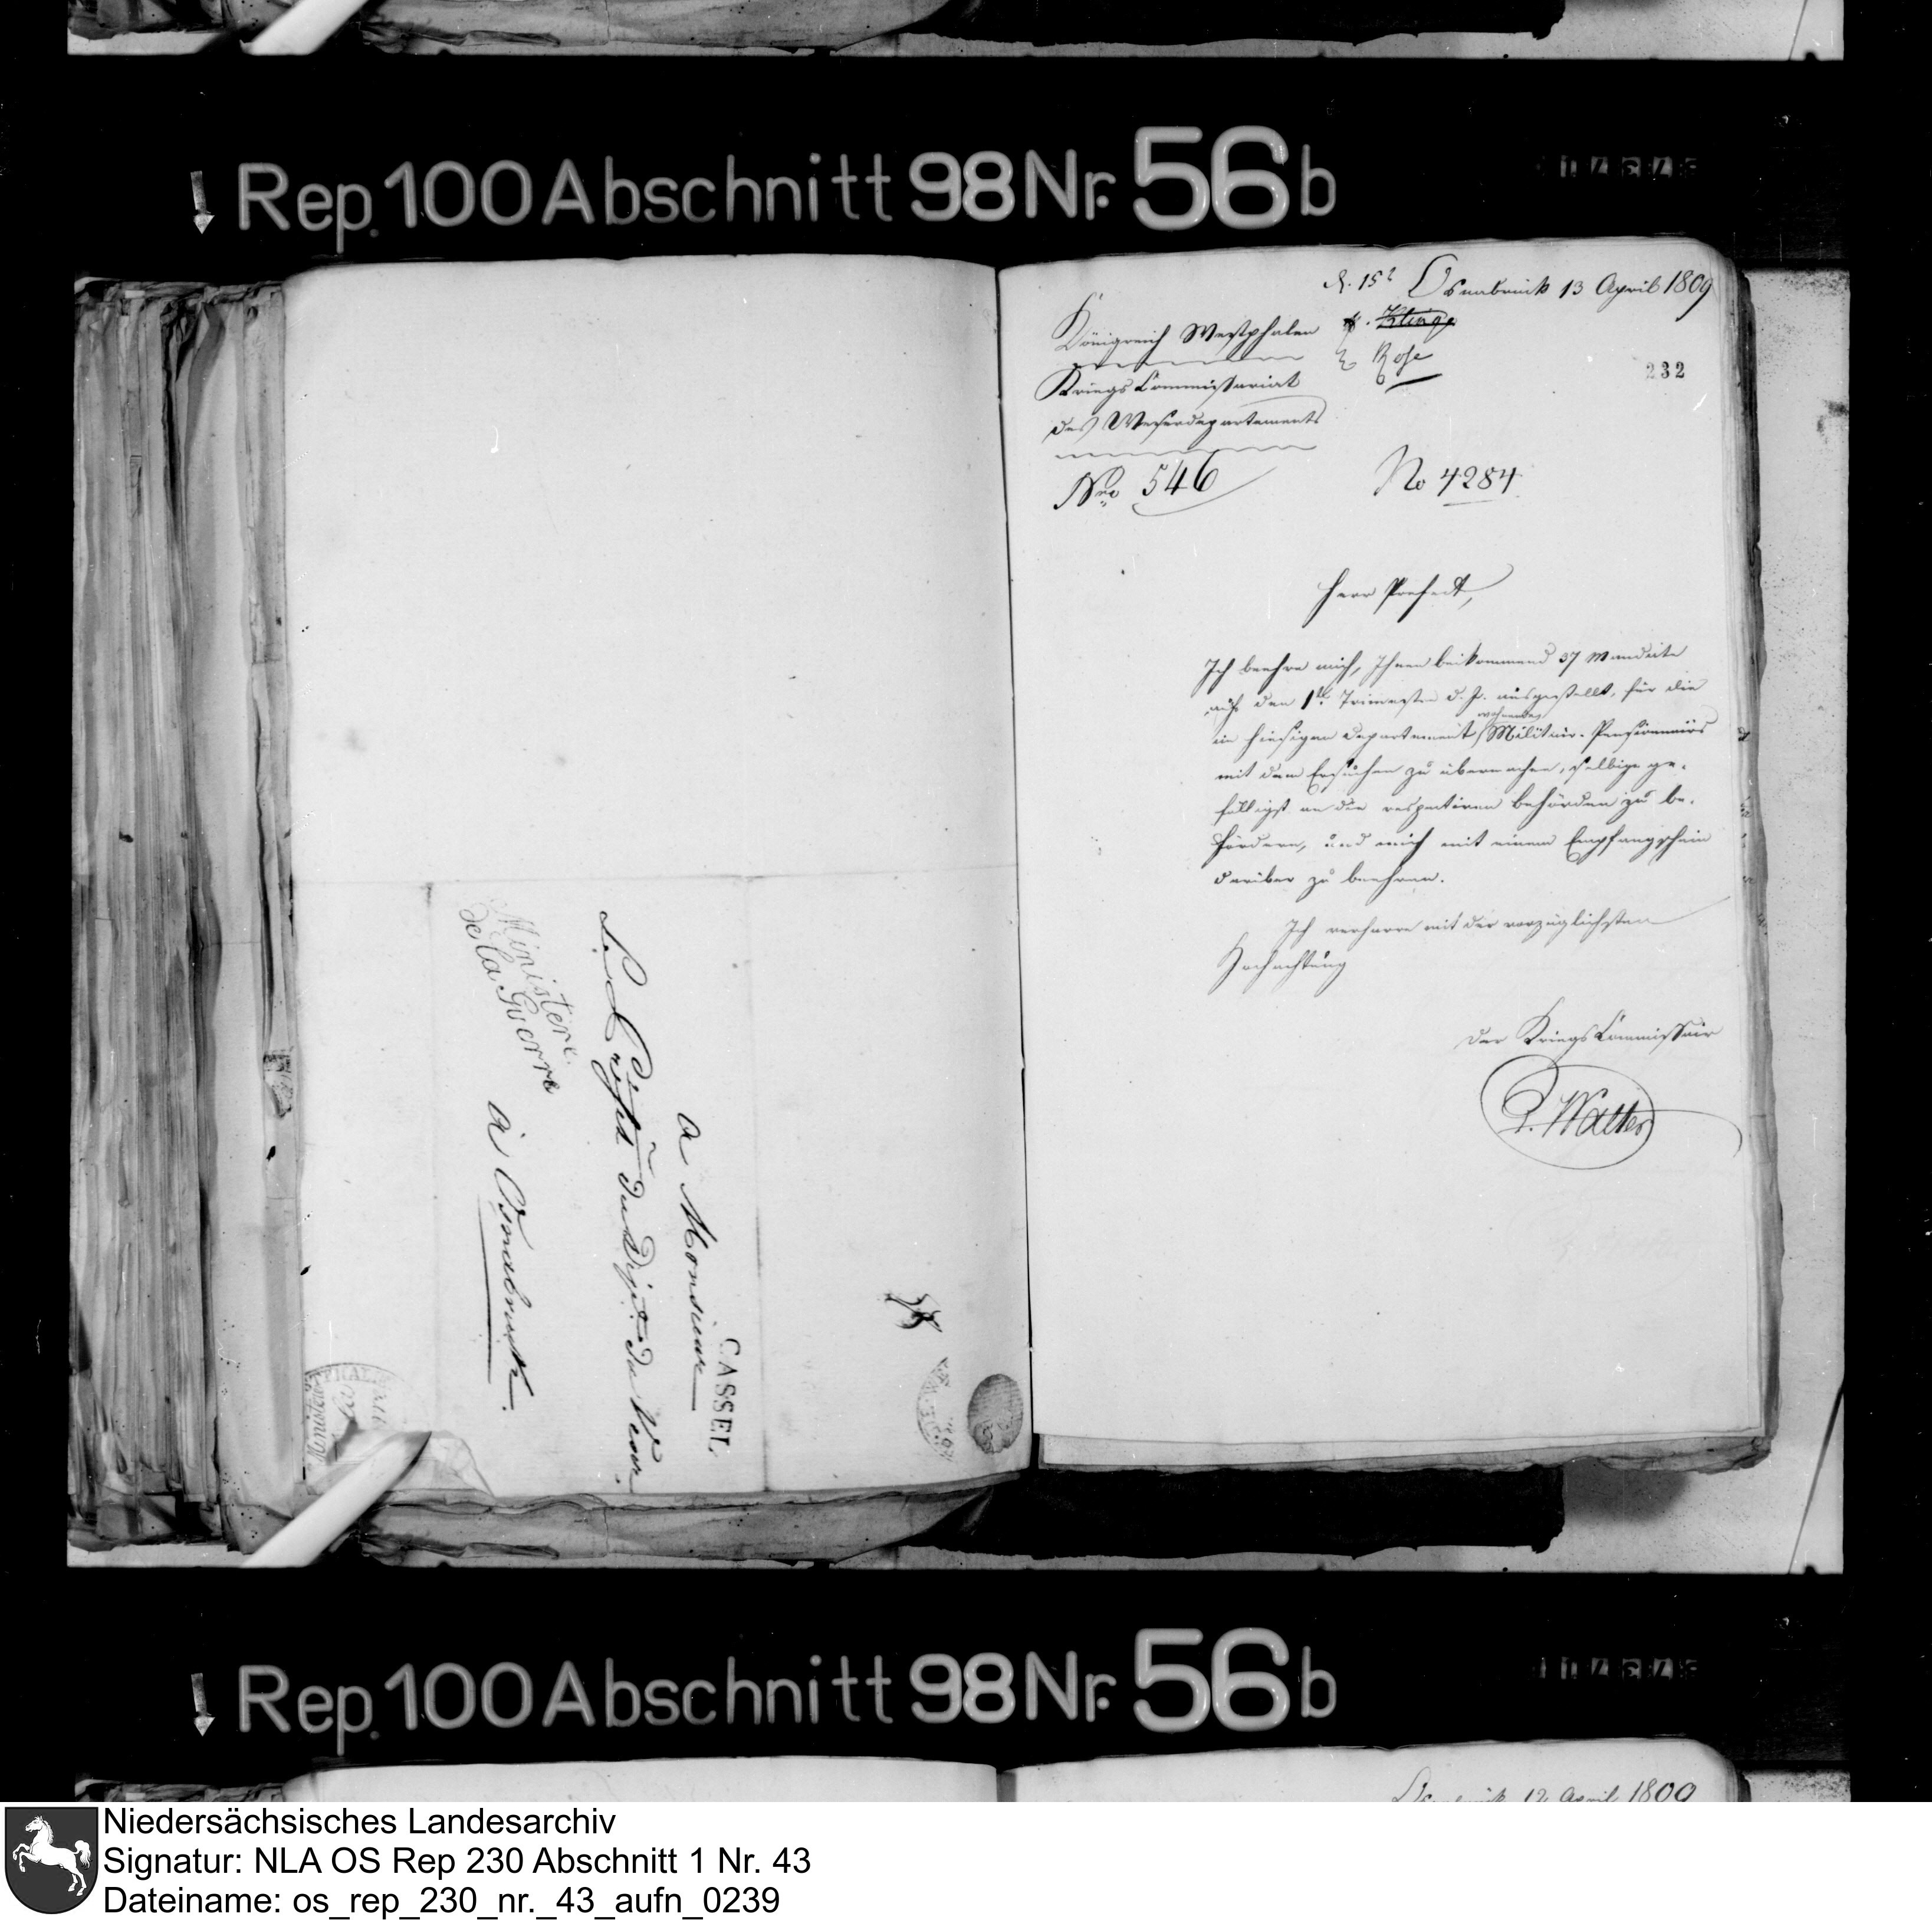 Rep. 100 Abschnitt 98 Nr. 56b
a Monsieur
CASSEL
Prefet du Dept. du Weser
à Osnabruck.
Ministere
de la Guerre
Osnabruck 13 April 1809
Königreich Westphalen
Kriegs Commissariat
des Weserdepartements
Nro 546
Klinge
Rose
232
No 4284
Herr Prefect,
Ich beehre mich, Ihnen beikommend 37 Mandate
auf den 1ten Trimester d. J. ausgestellt, für die
im hiesigen Departement wohnenden Militair-Pensionnairs
mit dem Ersuchen zu übermachen, selbige ge-
fälligst an die respectiven Behörden zu be-
fördern, und mich mit einem Empfangschein
darüber zu beehren.
Ich verharre mit der vorzüglichsten
Hochachtung
Der Kriegs Commissair
Walter
Rep. 100 Abschnitt 98 Nr. 56b
April 1809
Niedersächsisches Landesarchiv
Signatur: NLA OS Rep 230 Abschnitt 1 Nr. 43
Dateiname: os_rep_230_nr._43_aufn_0239